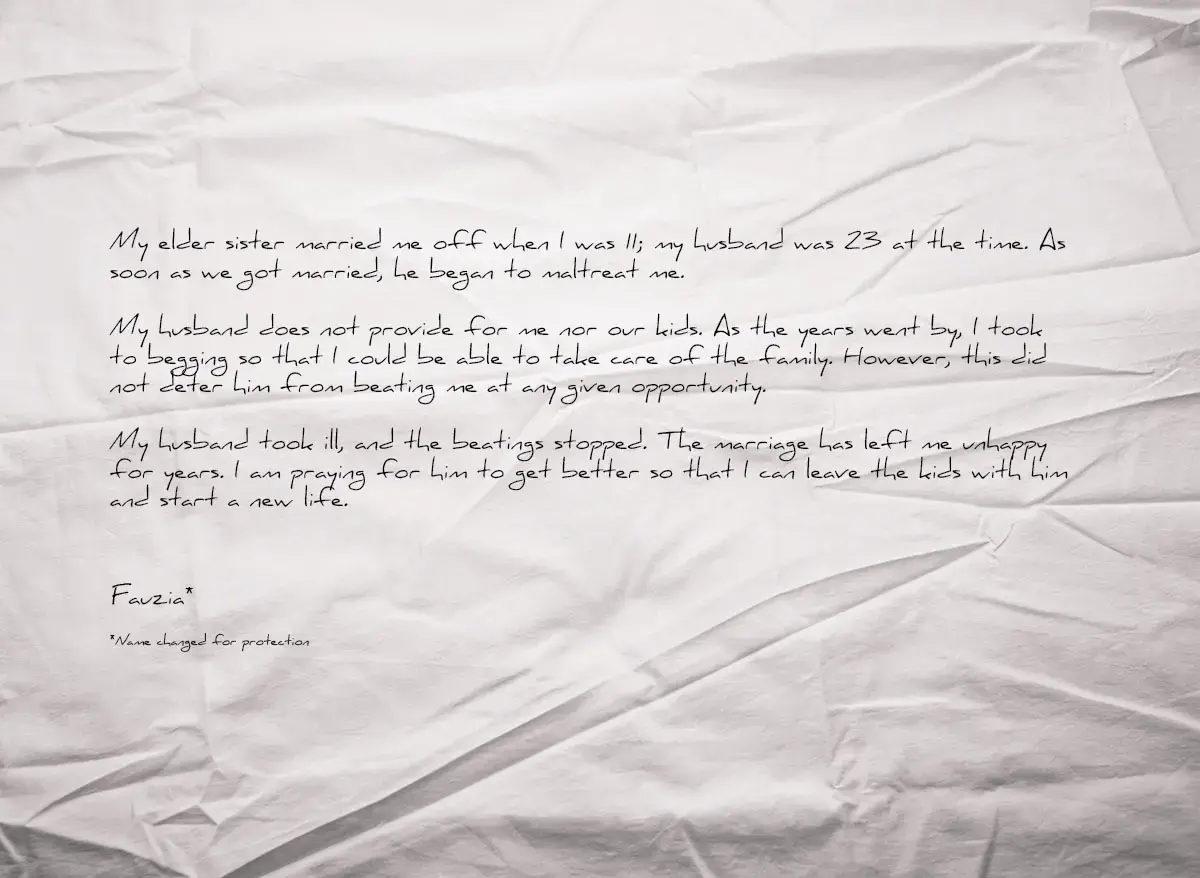 My elder sister married me off when I was 11; my husband was 23 at the time. As
soon as we got married, he began to maltreat me.
My husband does not provide for me nor our kids. As the years went by, I took
to begging so that I could be able to take care of the family. However, this did
not deter him from beating me at any given opportunity.
My husband took ill, and the beatings stopped. The marriage has left me unhappy
for years. I am praying for him to get better so that I can leave the kids with him
and start a new life.
Fauzia*
*Name changed for protection